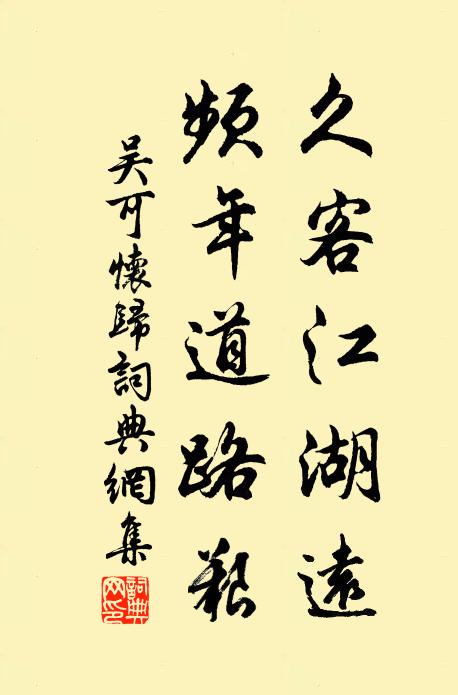 久客江湖遠
頻年道路艱
吳可懷歸詞典網集
詞典网印